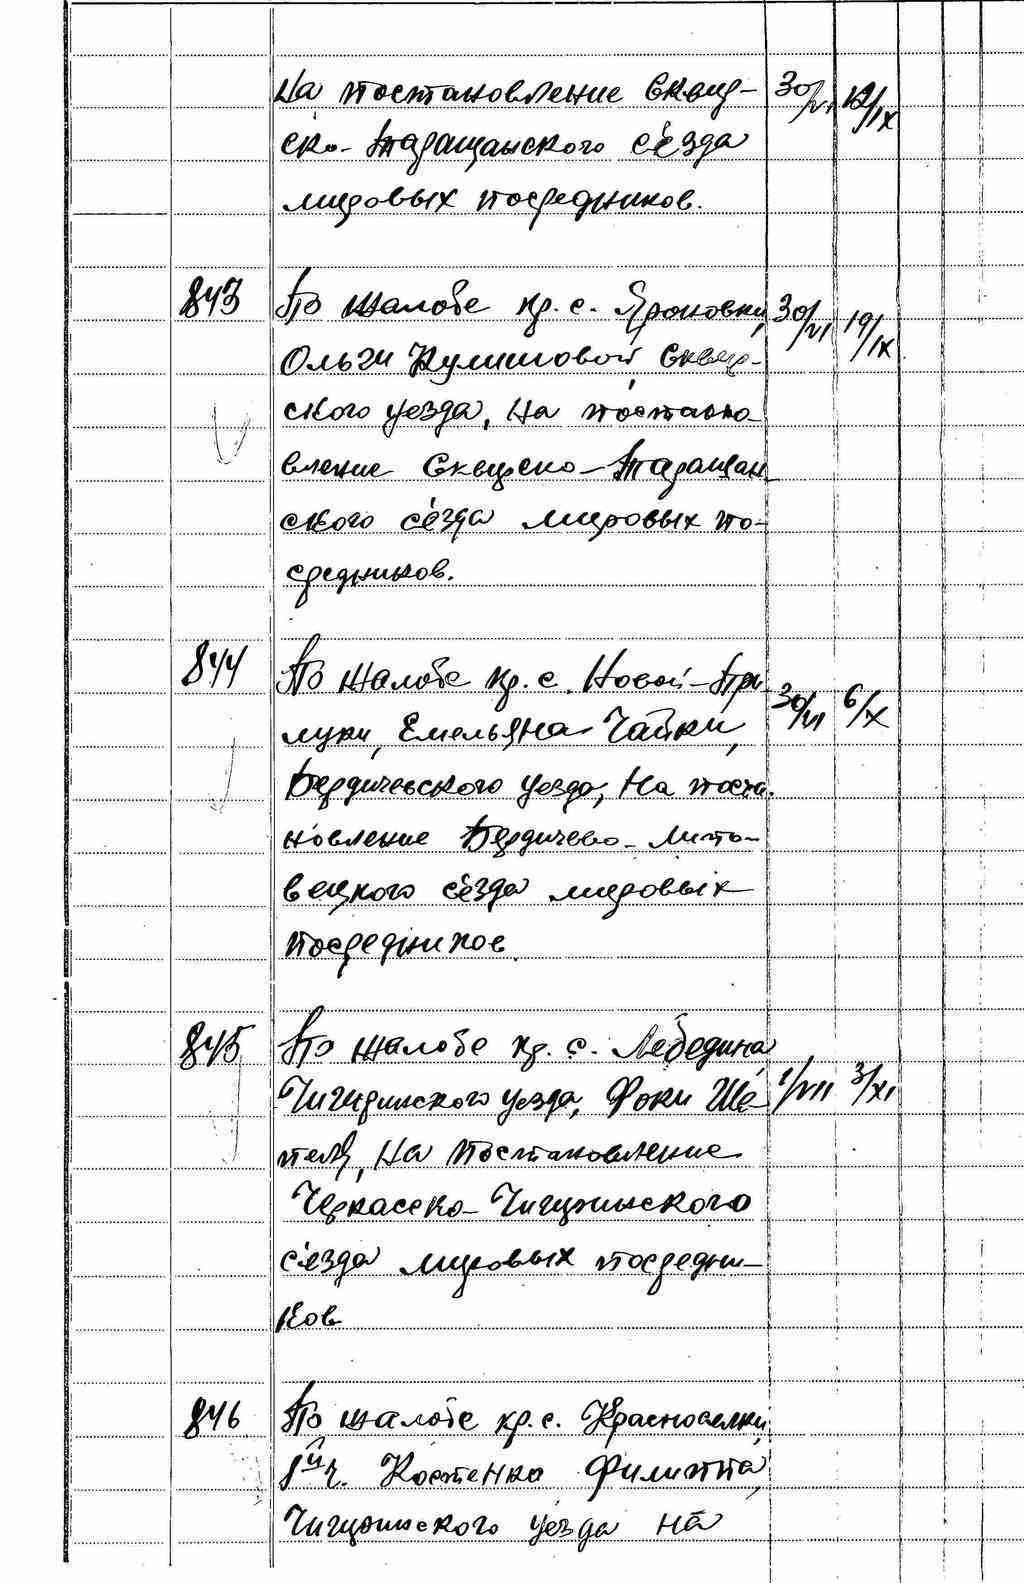 на постановление Сквир- 30/VI 12/IX
ско-Таращанского съезда
мировых посредников.
843 По жалобе кр. с. Яроповки, 30/VI 19/IX
Ольги Кулишовой, Сквир-
ского уезда, на постано-
вление Сквирско-Таращан-
ского съезда мировых по-
средников.
844 По жалобе кр. с. Новой-При-
луки, Емельяна Чайки, 30/VI 6/X
Бердичевского уезда, на поста-
новление Бердичево-Липо-
вецкого съезда мировых
посредников.
845 По жалобе кр. с. Лебедина,
Чигиринского уезда, Фоки Ше- 1/VII 3/XI
пеля, на постановление
Черкасско-Чигиринского
съезда мировых посредни-
ков
846 По жалобе кр. с. Красноселки,
1й ч. Костенка Филиппа,
Чигиринского уезда на